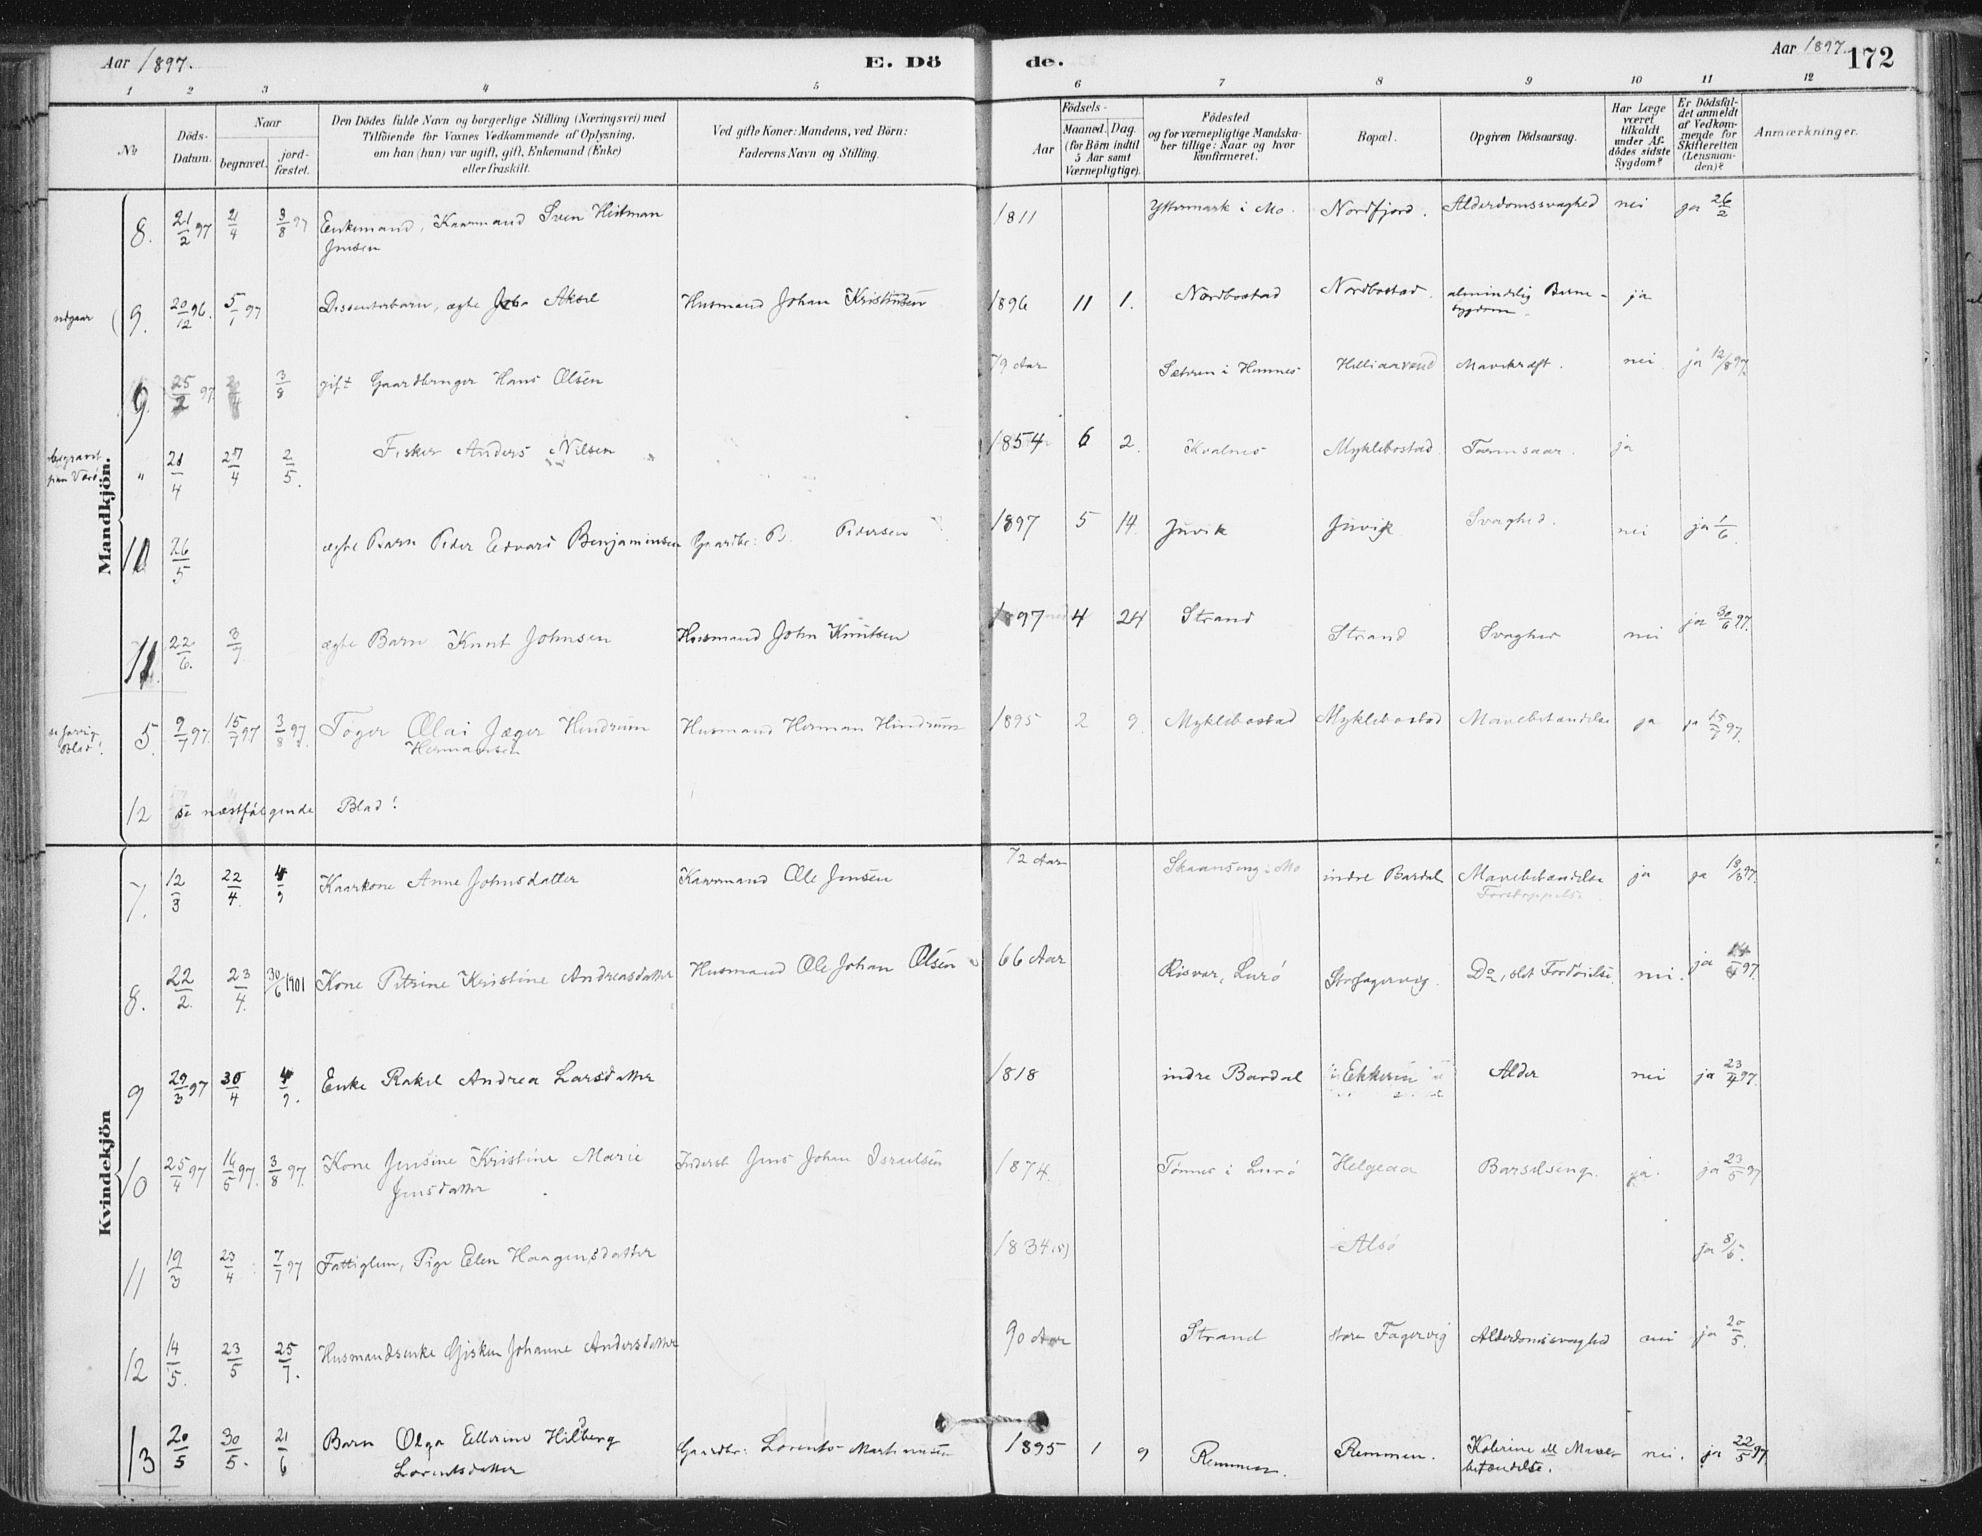 Aar 1897.
E. Dö de.
Aar 1897. 172
1 2 3 4 5 6 7 8 9 10 11 12
No
Döds-Datum.
Naar
begravet.
jord-fæstet.
Den Dödes fulde Navn og borgerlige Stilling (Næringsvei) med
Tilföiende for Voxnes Vedkommende af Oplysning,
om han (hun) var ugift, gift, Enkemand (Enke)
eller fraskilt.
Ved gifte Koner: Mandens, ved Börn:
Faderens Navn og Stilling.
Födsels-
Aar
Maaned. Dag.
(for Börn indtil
5 Aar samt
Værnepligtige).
Födested
og for værnepligtige Mandska-
ber tillige: Naar og hvor
konfirmeret.
Bopæl.
Opgiven Dödsaarsag.
Har Læge
været
tilkaldt
under Af-
dödes sidste
Sygdom?
Er Dödsfal-
det anmeldt
af Vedkom-
mende for
Skifteretten
(Lensman-
den)?
Anmærkninger.
Mandkjön.
8. 21/2 97 21/4 3/8 97 Enkemand, Kaarmand Sven Heitman 1811 Yttermark i Mo. Nordfjord. Alderdomssvaghed nei ja 26/2
Jensen
udgaar 9. 20/12 96. 5/1 97 Dissenterbarn, ægte Aksel Husmand Johan Kristensen 1896 11 1. Nordbostad Nordbostad. almindelig Barne- ja
sygdom.
9. 25/2 97 3/8 gift Gaardbruger Hans Olsen 79 Aar Sætren i Hemnes Mavekræft. nei ja 12/8 97.
begravet " 21/4 27/4 2/5. Fisker Anders Nilsen 1854 6 2. Kvalnes Myklebostad ja
10 26/5 ægte Barn Peder Edvard Benjaminsen Gaardbr: B. Pedersen 1897 5 14. Juvik Juvik Svaghed. nei ja 1/6.
11. 22/6. 3/7 ægte Barn Knut Johnsen Husmand John Knutsen 1897 4 24 Strand Strand Svaghed nei ja 30/6 97.
se forrige Blad! 5. 9/7 97. 15/7 97 3/8 97. Tøger Olai Jæger Hindrum Husmand Herman Hindrum 1895 2 9. Myklebostad Myklebostad Mavebetændelse ja ja 15/7 97.
Hermansen
12 se næstfølgende Blad!
Kvindekjön
7. 12/3 22/4. 4/9 Kaarkone Anne Johnsdatter Kaarmand Ole Jensen 72 Aar Skaanseng i Mo indre Bardal Mavebetændelse ja ja 18/3 97.
Forstoppelse
8. 22/2. 23/4. 30/6 1901 Kone Petrine Kristine Andreasdatter Husmand Ole Johan Olsen 66 Aar Risvær, Lurö Storfagervig. Do, slet Fordøielse. nei. ja 14/4 97.
9 29/3 97 30/4 4/9. Enke Rakel Andrea Larsdatter 1818 indre Bardal Ekkeren Alder nei ja 23/4 97.
10 25/4 97 16/5 97. 3/8 97. Kone Jensine Kristine Marie Inderst Jens Johan Israelsen 1874. Tonnes i Lurö Helgeaa Barselseng. ja. ja 23/5 97
Jensdatter
11 19/3 23/4 7/7 97 Fattiglem, Pige Elen Haagensdatter 1834 (5) Alsö ja 8/5.
12 14/5. 23/5 25/7. Husmandsenke Gisken Johanne Andersdatter 90 Aar Strand store Fagervig Alderdomssvaghed nei ja 20/5.
13 20/5 30/5. 21/6 Barn Olga Ellerine Hilberg Gaardbr: Lorents Martinusen 1895 1 9 Remmen. Remmen. Kolerine ell Mave- nei. ja 22/5 97.
Lorentsdatter betændelse.